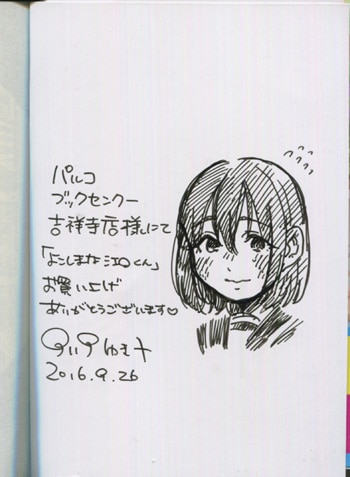 パルコ
ブックセンター
吉祥寺店様にて
「よこしまな江口くん」
お買い上げ
ありがとうございます♡
2016.9.26